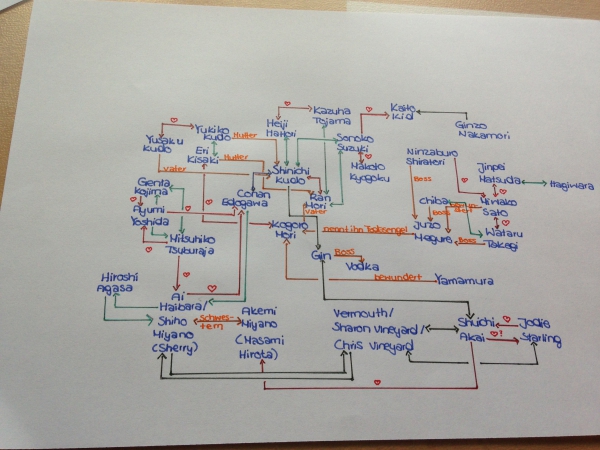 Kazuha
Tojama
Kaito
Kid
Heiji
Hattori
Ginzo
Nakamori
Yukiko
Kudo
Mutter
Yusaku
Kudo
Eri
Kisaki
Mutter
Sonoko
Suzuki
Ninzaburo
Shiratori
Vater
Shinichi
Kudo
Makoto
Kyogoku
Jinpei
Matsuda
Hagiwara
Genta
Kojima
Conan
Edogawa
Ran
Mori
Vater
Boss
Chiba
Boss
Miwako
Sato
Ayumi
Yoshida
Mitsuhiko
Tsuburaja
Kogoro
Mori
nennt ihn Todesengel
Juzo
Megure
Boss
Wataru
Takagi
Gin
Boss
Vodka
bewundert
Yamamura
Hiroshi
Agasa
Ai
Haibara/
Shiho
Miyano
(Sherry)
Schwes-
tern
Akemi
Miyano
(Masami
Hirota)
Vermouth/
Sharon Vineyard/
Chris Vineyard
Shuichi
Akai
!
Jodie
Starling